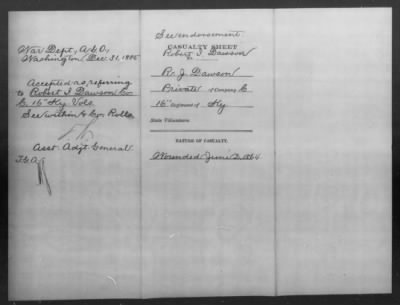 War Dept, A.G.O,
Washington Dec. 31, 1885
Accepted as referring
to Robert I Dawson Co
G. 16" Ky Vols
See within & Co. Rolls
Asst. Adjt. General
See endorsement
CASUALTY SHEET
Robert I. Dawson
R. J. Dawson
Private Company G
16" Regiment of Ky
State Volunteers
NATURE OF CASUALTY.
Wounded June 2, 1864